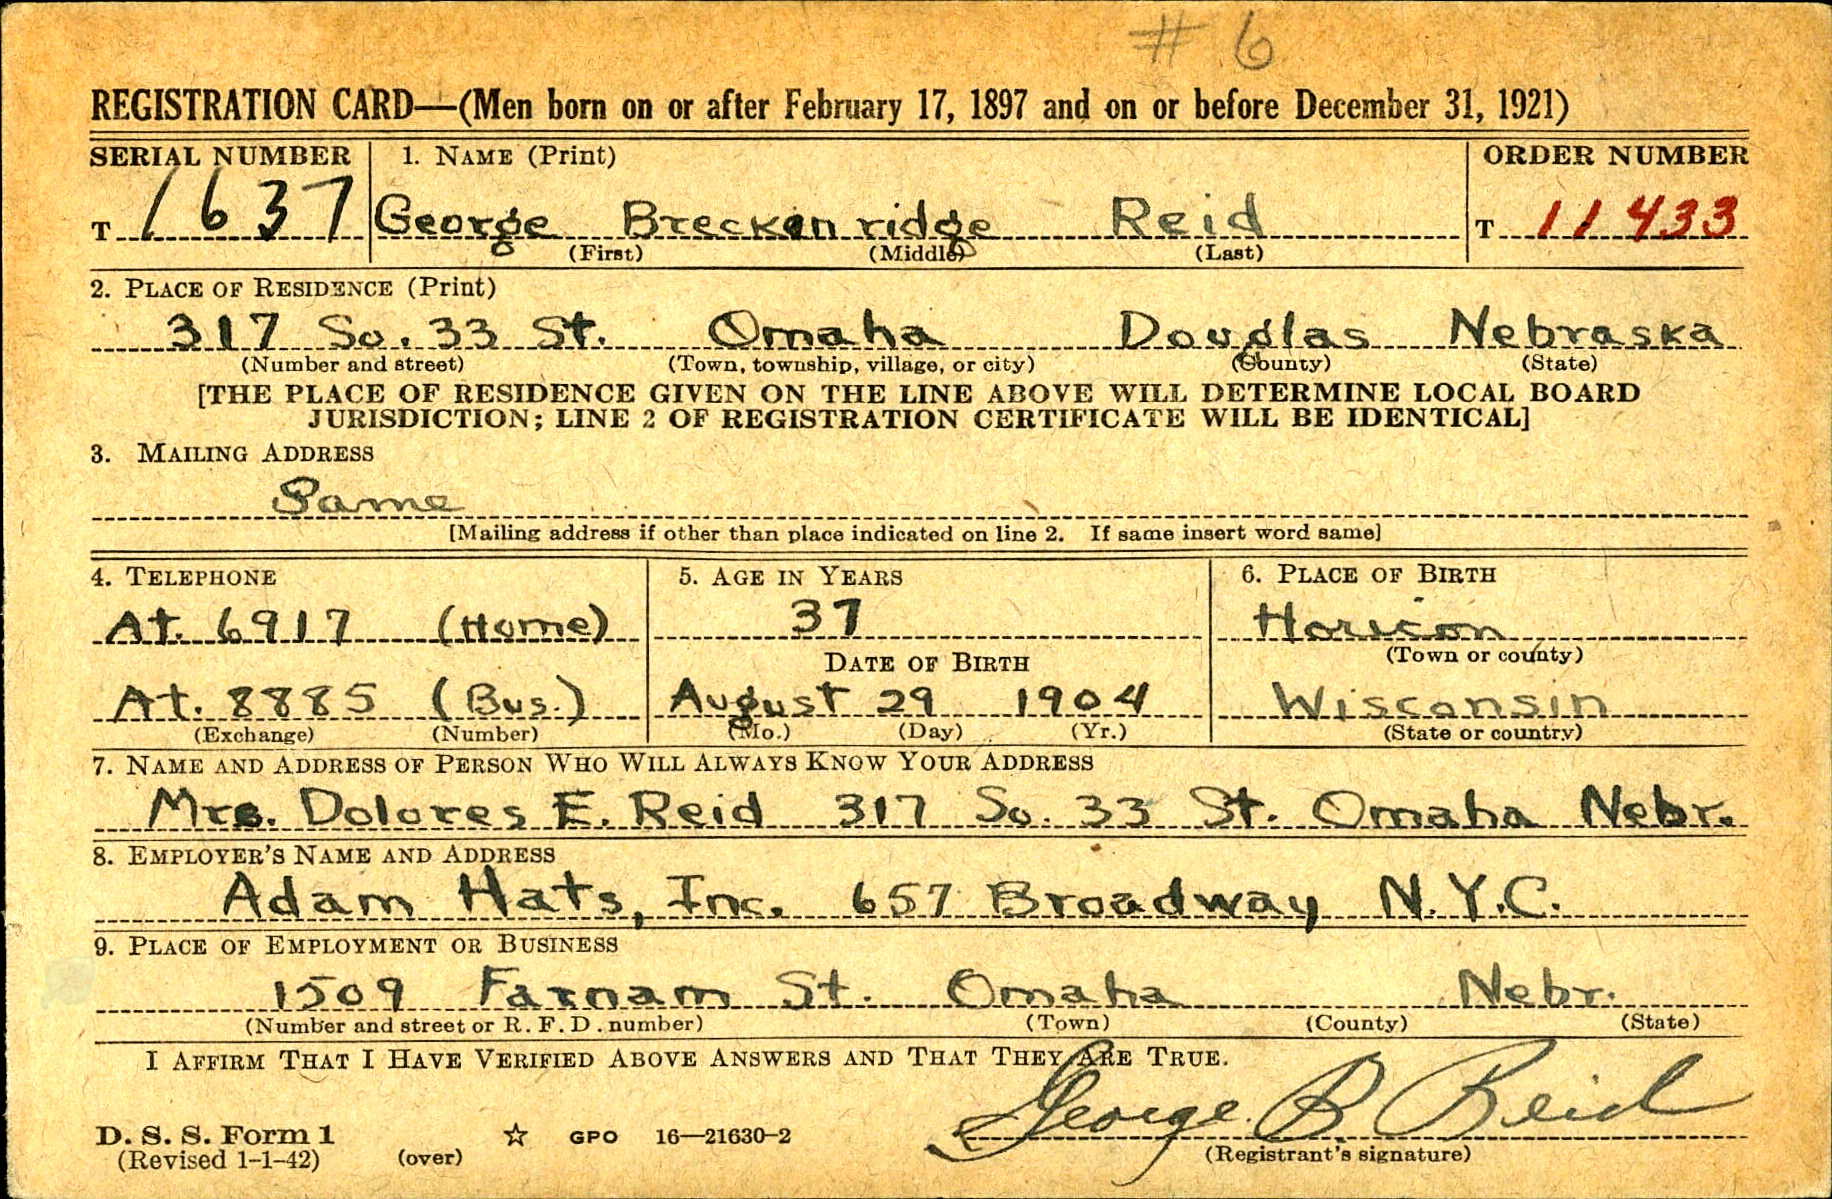 # 6
REGISTRATION CARD—(Men born on or after February 17, 1897 and on or before December 31, 1921)
SERIAL NUMBER 1. NAME (Print) ORDER NUMBER
T 1637 George Breckenridge Reid T 11433
(First) (Middle) (Last)
2. PLACE OF RESIDENCE (Print)
317 So. 33 St. Omaha Douglas Nebraska
(Number and street) (Town, township, village, or city) (County) (State)
[THE PLACE OF RESIDENCE GIVEN ON THE LINE ABOVE WILL DETERMINE LOCAL BOARD
JURISDICTION; LINE 2 OF REGISTRATION CERTIFICATE WILL BE IDENTICAL]
3. MAILING ADDRESS
Same
[Mailing address if other than place indicated on line 2. If same insert word same]
4. TELEPHONE 5. AGE IN YEARS 6. PLACE OF BIRTH
At. 6917 (Home) 37 Horicon
DATE OF BIRTH (Town or county)
At. 8885 (Bus.) August 29 1904 Wisconsin
(Exchange) (Number) (Mo.) (Day) (Yr.) (State or country)
7. NAME AND ADDRESS OF PERSON WHO WILL ALWAYS KNOW YOUR ADDRESS
Mrs. Dolores E. Reid 317 So. 33 St. Omaha Nebr.
8. EMPLOYER'S NAME AND ADDRESS
Adam Hats, Inc. 657 Broadway N.Y.C.
9. PLACE OF EMPLOYMENT OR BUSINESS
1509 Farnam St. Omaha Nebr.
(Number and street or R. F. D. number) (Town) (County) (State)
I AFFIRM THAT I HAVE VERIFIED ABOVE ANSWERS AND THAT THEY ARE TRUE.
George B Reid
D. S. S. Form 1 ☆ GPO 16—21630-2
(Revised 1-1-42) (over) (Registrant's signature)